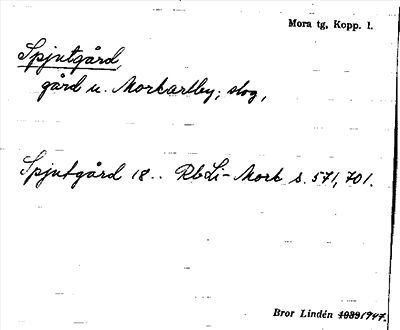 Mora tg, Kopp. l.
Spjutgård,
gård u. Morkarlby; slog,
Spjutgård 18.. RbLi-Mork s. 571, 701.
Bror Lindén 1939 1947.